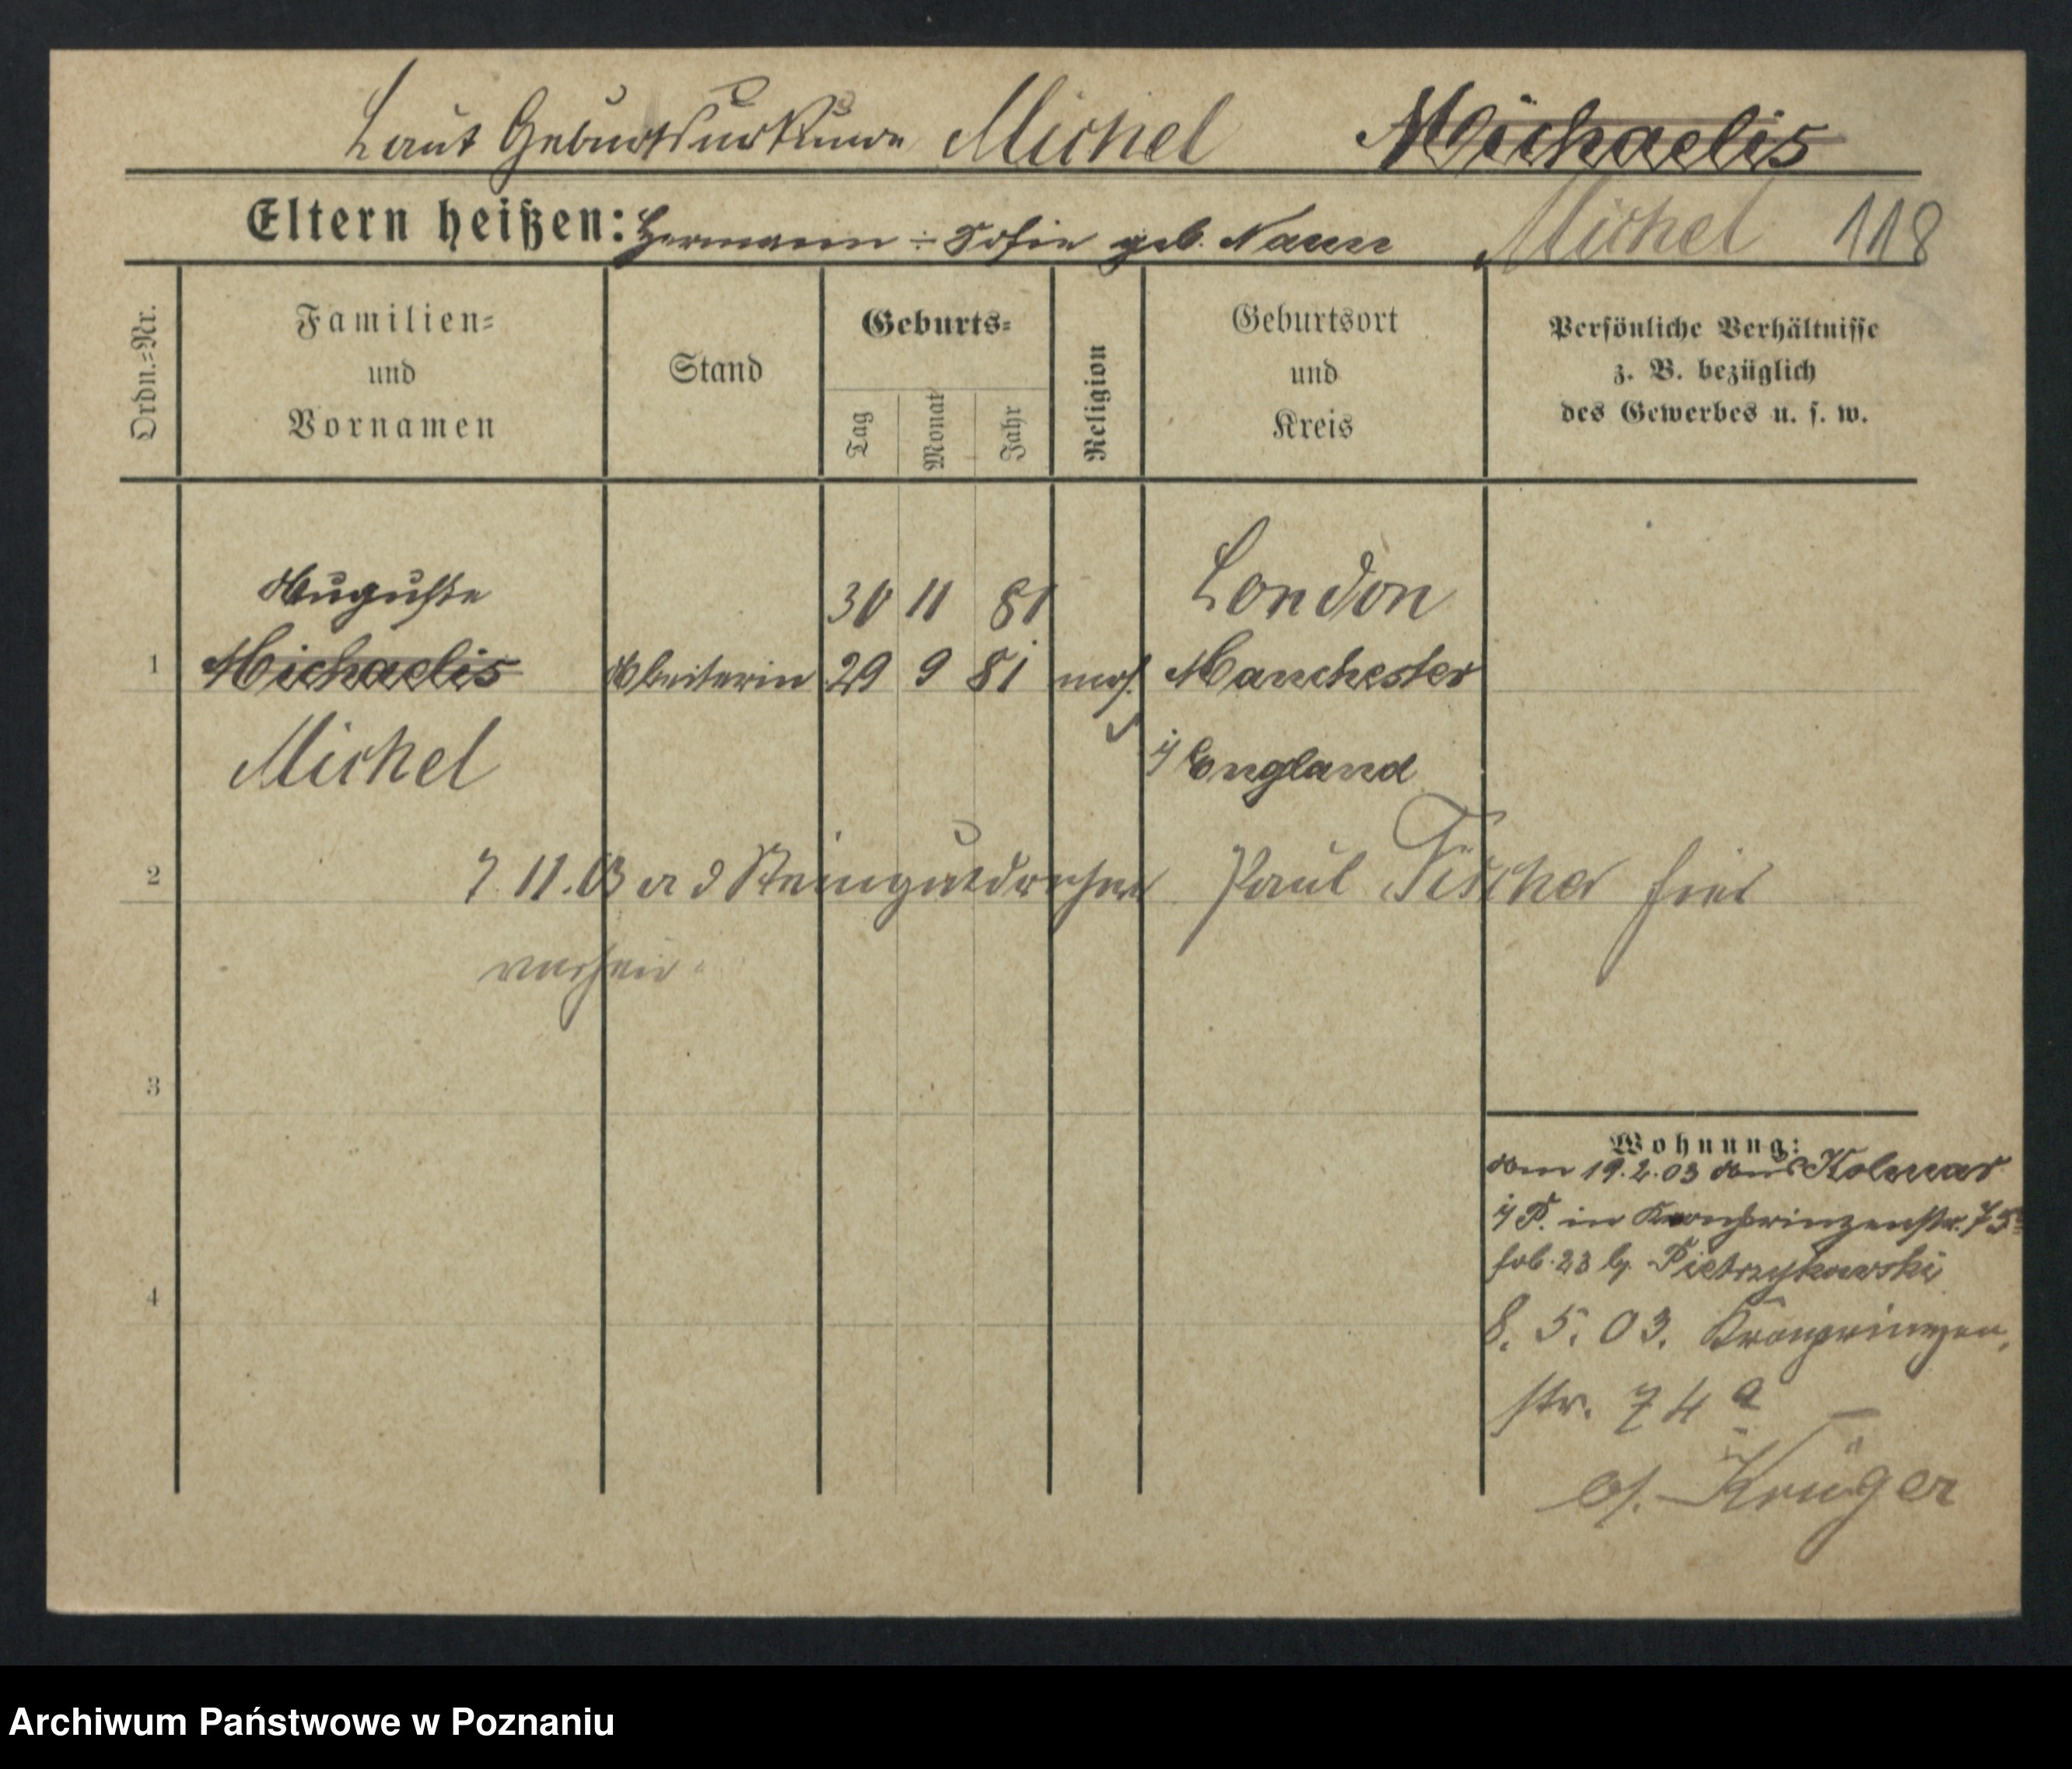 Laut Geburtsurkunde Michel Michaelis
Eltern heißen: Hermann - Sofie geb. Michel 118
Ordn.=Nr.
Familien=
und
Vornamen
Stand
Geburts=
Tag
Monat
Jahr
Religion
Geburtsort
und
Kreis
Persönliche Verhältnisse
z. B. bezüglich
des Gewerbes u. s. w.
Auguste 30 11 81 London
1 Michaelis Arbeiterin 29 9 81 mos. Manchester
Michel i/ England
2 7.11.03 a d Steingutdreher Paul Fischer hier
verheir.
3
Wohnung:
Am 19.2.03 aus Kolmar
i/ P. in Kronprinzenstr. 75
4 23 b. Pietrzykowski
8. 5. 03. Kronprinzen
str. 74 a
Krüger
Archiwum Państwowe w Poznaniu